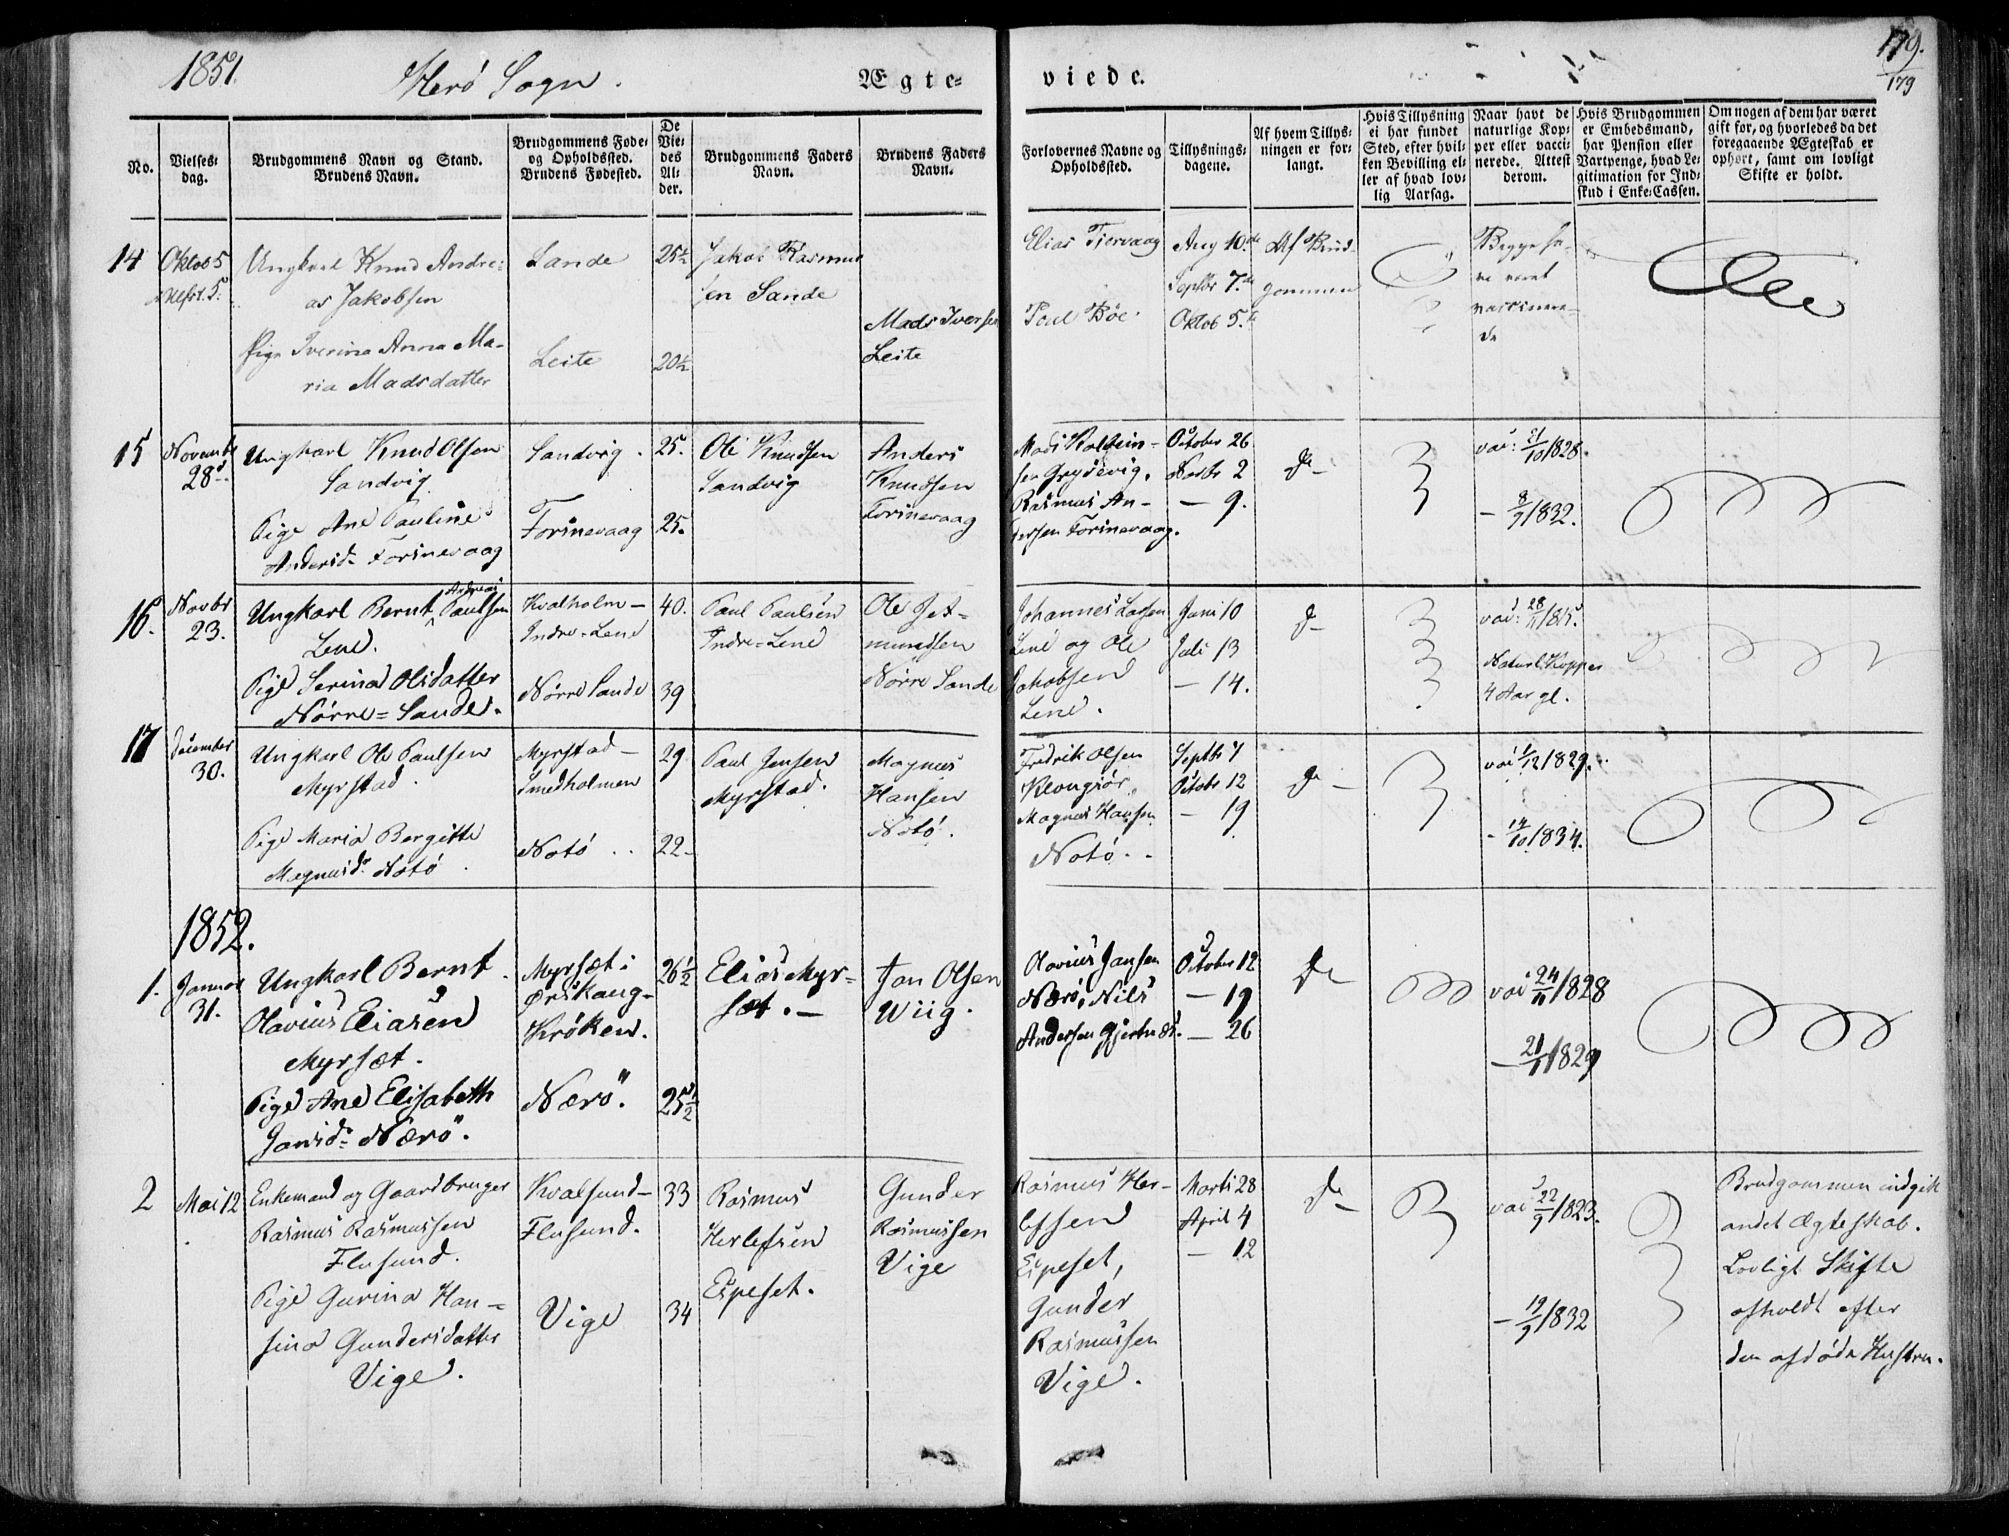 1851.
Herø Sogn.
Ægte-
viede.
179.
179
No.
Vielses-
dag.
Brudgommens Navn og Stand.
Brudens Navn.
Brudgommens Føde-
og Opholdssted.
Brudens Fødested.
De
Vie-
des
Al-
der.
Brudgommens Faders
Navn.
Brudens Faders
Navn.
Forlovernes Navne og
Opholdssted.
Tillysnings-
dagene.
Af hvem Tillys-
ningen er for-
langt.
Hvis Tillysning
ei har fundet
Sted, efter hvil-
ken Bevilling el-
ler af hvad lov-
lig Aarsag.
Naar havt de
naturlige Kop-
per eller vacci-
nerede. Attest
derom.
Hvis Brudgommen
er Embedsmand,
har Pension eller
Vartpenge, hvad Le-
gitimation for Ind-
skud i Enke-Cassen.
Om nogen af dem har været
gift før, og hvorledes da det
foregaaende Ægteskab er
ophørt, samt om lovligt
Skifte er holdt.
14
Oktob 5
Ungkarl Knud Andre-
as Jakobsen
Pige Iverina Anna Ma-
ria Madsdatter
Sande
Leite
25½
20½
Jakob Rasmus
sen Sande
Mads Iversen
Leite
Elias Tjervaag
Poul Bøe
Aug 10.de
Septbr 7.de
Oktob 5.te
Af Brud-
gommen
Begge ha-
ve været
vaccinere-
de
15
Novembr
28.
Ungkarl Knud Olsen
Sandvig
Pige Ane Pauline
Andersd. Torinevaag
Sandvig.
Torinevaag
25.
25.
Ole Knudsen
Sandvig
Anders
Knudsen
Torinevaag
Mads
sen Grydevig.
Rasmus An-
dersen Torinevaag.
October 26
Novbr 2
— 9.
Do
vac: 21/10 1828.
— 8/9 1832.
16.
Novbr
23.
Ungkarl Bernt Andreas Paulsen
Lene.
Pige Serina Olsdatter
Nørre-Sande.
Kvalholm —
Indre-Lene
Nørre Sande
40.
39
Paul Paulsen
Indre-Lene
Ole Jet-
mundsen
Nørre Sande
Johannes Larsen
Lene og Ole
Jakobsen
Lene.
Juni 10
Juli 13
— 14.
Do
vac: 28/11 1815.
Naturl. Kopper
4 Aar gl.
17
December
30.
Ungkarl Ole Paulsen
Myrstad.
Pige Maria Bergitte
Magnusdr. Notø.
Myrstad —
Smedholmen
Notø
29
22
Paul Jensen
Myrstad.
Magnus
Hansen
Notø.
Fredrik Olsen
Kongsør,
Magnus Hansen
Notø.
Septbr 7
Octobr 12
— 19
Do
vac 1/12 1829.
— 14/10 1834.
1852.
1.
Januar
31.
Ungkarl Bernt
Olavius Eliasen
Myrsæt.
Pige Ane Elisabeth
Jansdr. Nærø.
Myrsæt i
Ørskaug-
Krøken.
Nærø.
26½
25½
Elias Myr-
sæt. —
Jan Olsen
Wiig.
Olavius Jansen
Nærø, Nils
Andersen Gjertnæs.
October 12
— 19
— 26
Do
vac 24/11 1828
— 21/11 1829
2
Mai 12
Enkemand og Gaardbruger
Rasmus Rasmussen
Flusund.
Pige Gurina Han-
sina Gundersdatter
Vige.
Kvalsund —
Flusund.
Vige
33
34
Rasmus
Herlefsen
Espeset.
Gunder
Rasmussen
Vige
Rasmus Her-
lefsen
Espeset,
Gunder
Rasmussen
Vige.
Marts 28
April 4
— 12
Do
vac 22/9 1823.
— 19/9 1832
Brudgommen indgik
andet Ægteskab.
Lovligt Skifte
afholdt efter
den afdøde Hustru.